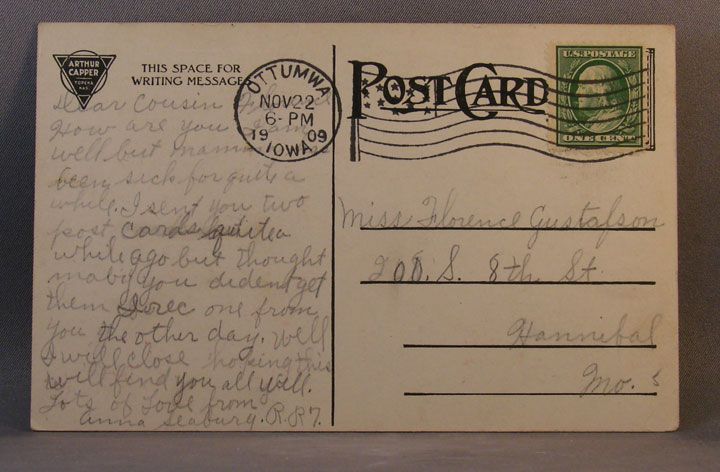 ARTHUR
CAPPER
TOPEKA
KAS.
THIS SPACE FOR
WRITING MESSAGES
OTTUMWA
NOV 22
6-PM
1909
IOWA
POST CARD
U.S. POSTAGE
ONE CENT
Dear Cousin
How are you I am
well but mamma
been sick for quite a
while. I sent you two
post cards quite a
while ago but thought
maby you dident get
them I rec one from
you the other day. Well
I will close hoping this
will find you all well.
Lots of Love from
Anna Seaburg. R.R7.
Miss Florence Gustafson
200. S. 8th St.
Hannibal
Mo.